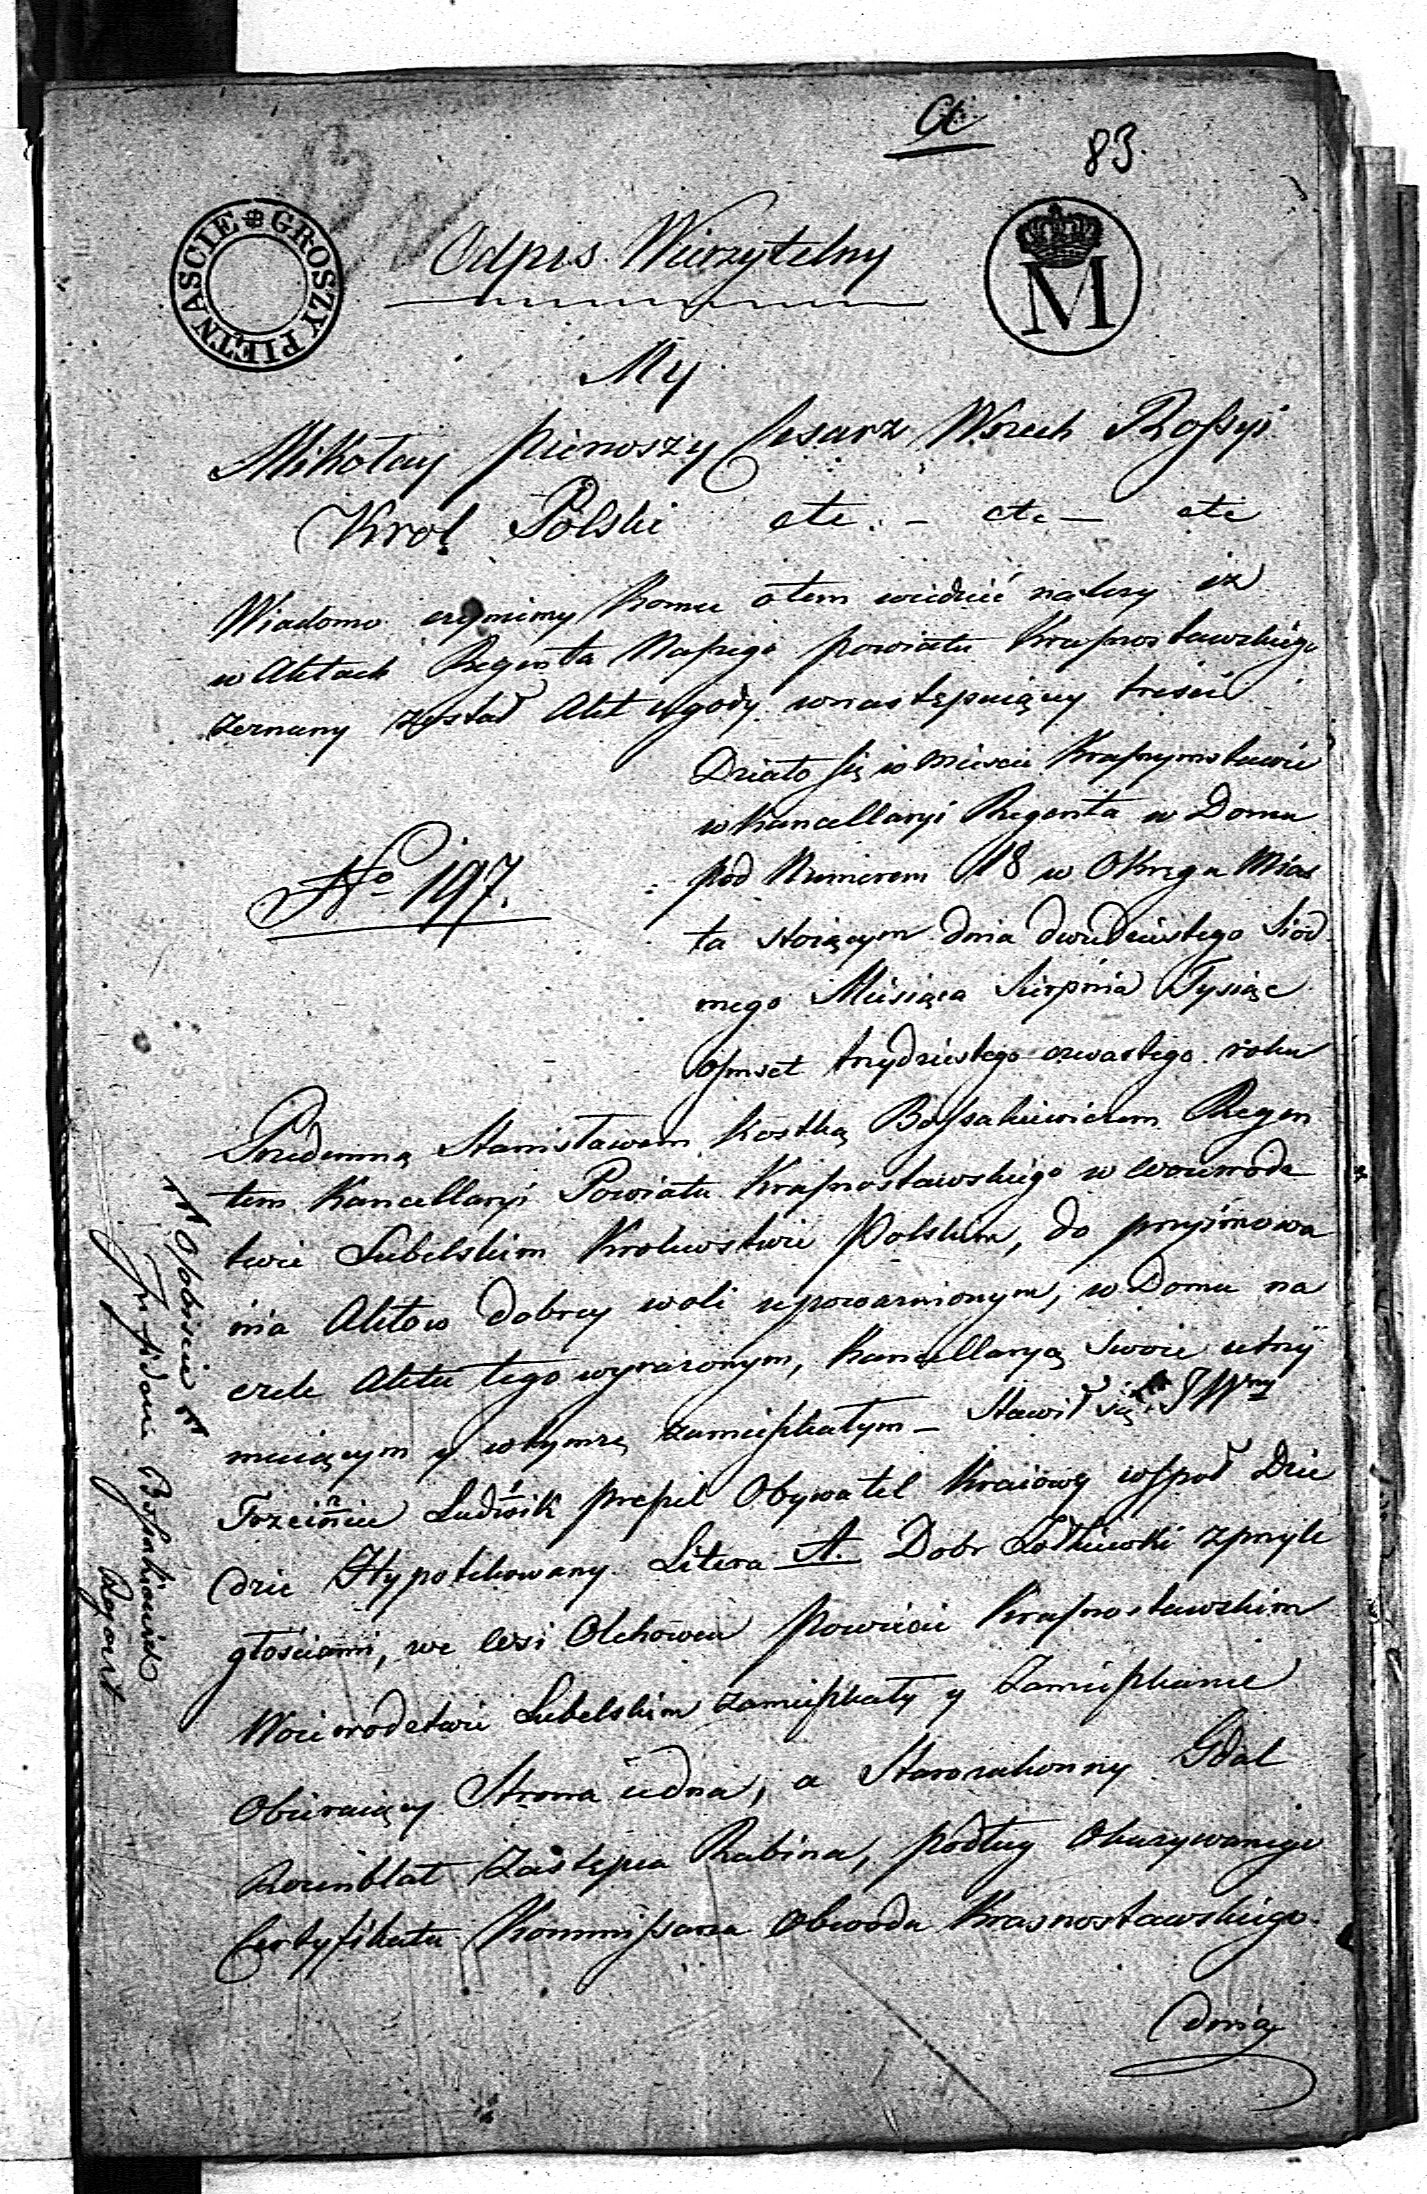 a
83.
GROSZY PIĘTNAŚCIE
M
Odpis Wierzytelny
My
Mikołay pierwszy Cesarz Wszech Rossyi
Krol Polski etc. - etc - etc
Wiadomo czynimy komu otem wiedzieć należy iż
w Aktach Regenta Naszego powiatu Krasnostawskiego
zeznany został Akt ugody wnastępuiący treści
Działo się w mieście Krasnymstawie
w Kancellaryi Regenta w Domu
pod Numerem 18 w Okręgu Mias
ta stoiącym dnia dwudziestego siod
mego Miesiąca Sierpnia Tysiąc
osmset trzydziestego czwartego roku
No 197.
Przedemną Stanisławem Kostką Bossakiewiczem Regen
tem Kancellaryi Powiatu Krasnostawskiego w Woiewodz
twie Lubelskim Krolewstwie Polskim, do przyimowa
nia Aktow dobrey woli upoważnionym, w Domu na
czele Aktu tego wyrażonym, Kancellaryą swoię utrzy
muiącym y wtymże zamieszkałym - Stawił się JWny
Trzcińsku Ludwik prefil Obywatel Kraiowy wspoł Dzie
dzic Hypotekowany Litera A. Dobr Zołkiewki zprzyle
głościami, we wsi Olchowcu powiecie Krasnostawskim
Woiewodztwie Lubelskim zamieszkały y Zamieszkanie
Obieraiący Strona iedna, a Starozakonny Gdal
Rozenblat Zastępca Rabina, podług Okazywanego
Certyfikatu Kommissarza Obwodu Krasnostawskiego
dnia
Osobiście
In fidem Bossakiewicz
Regent